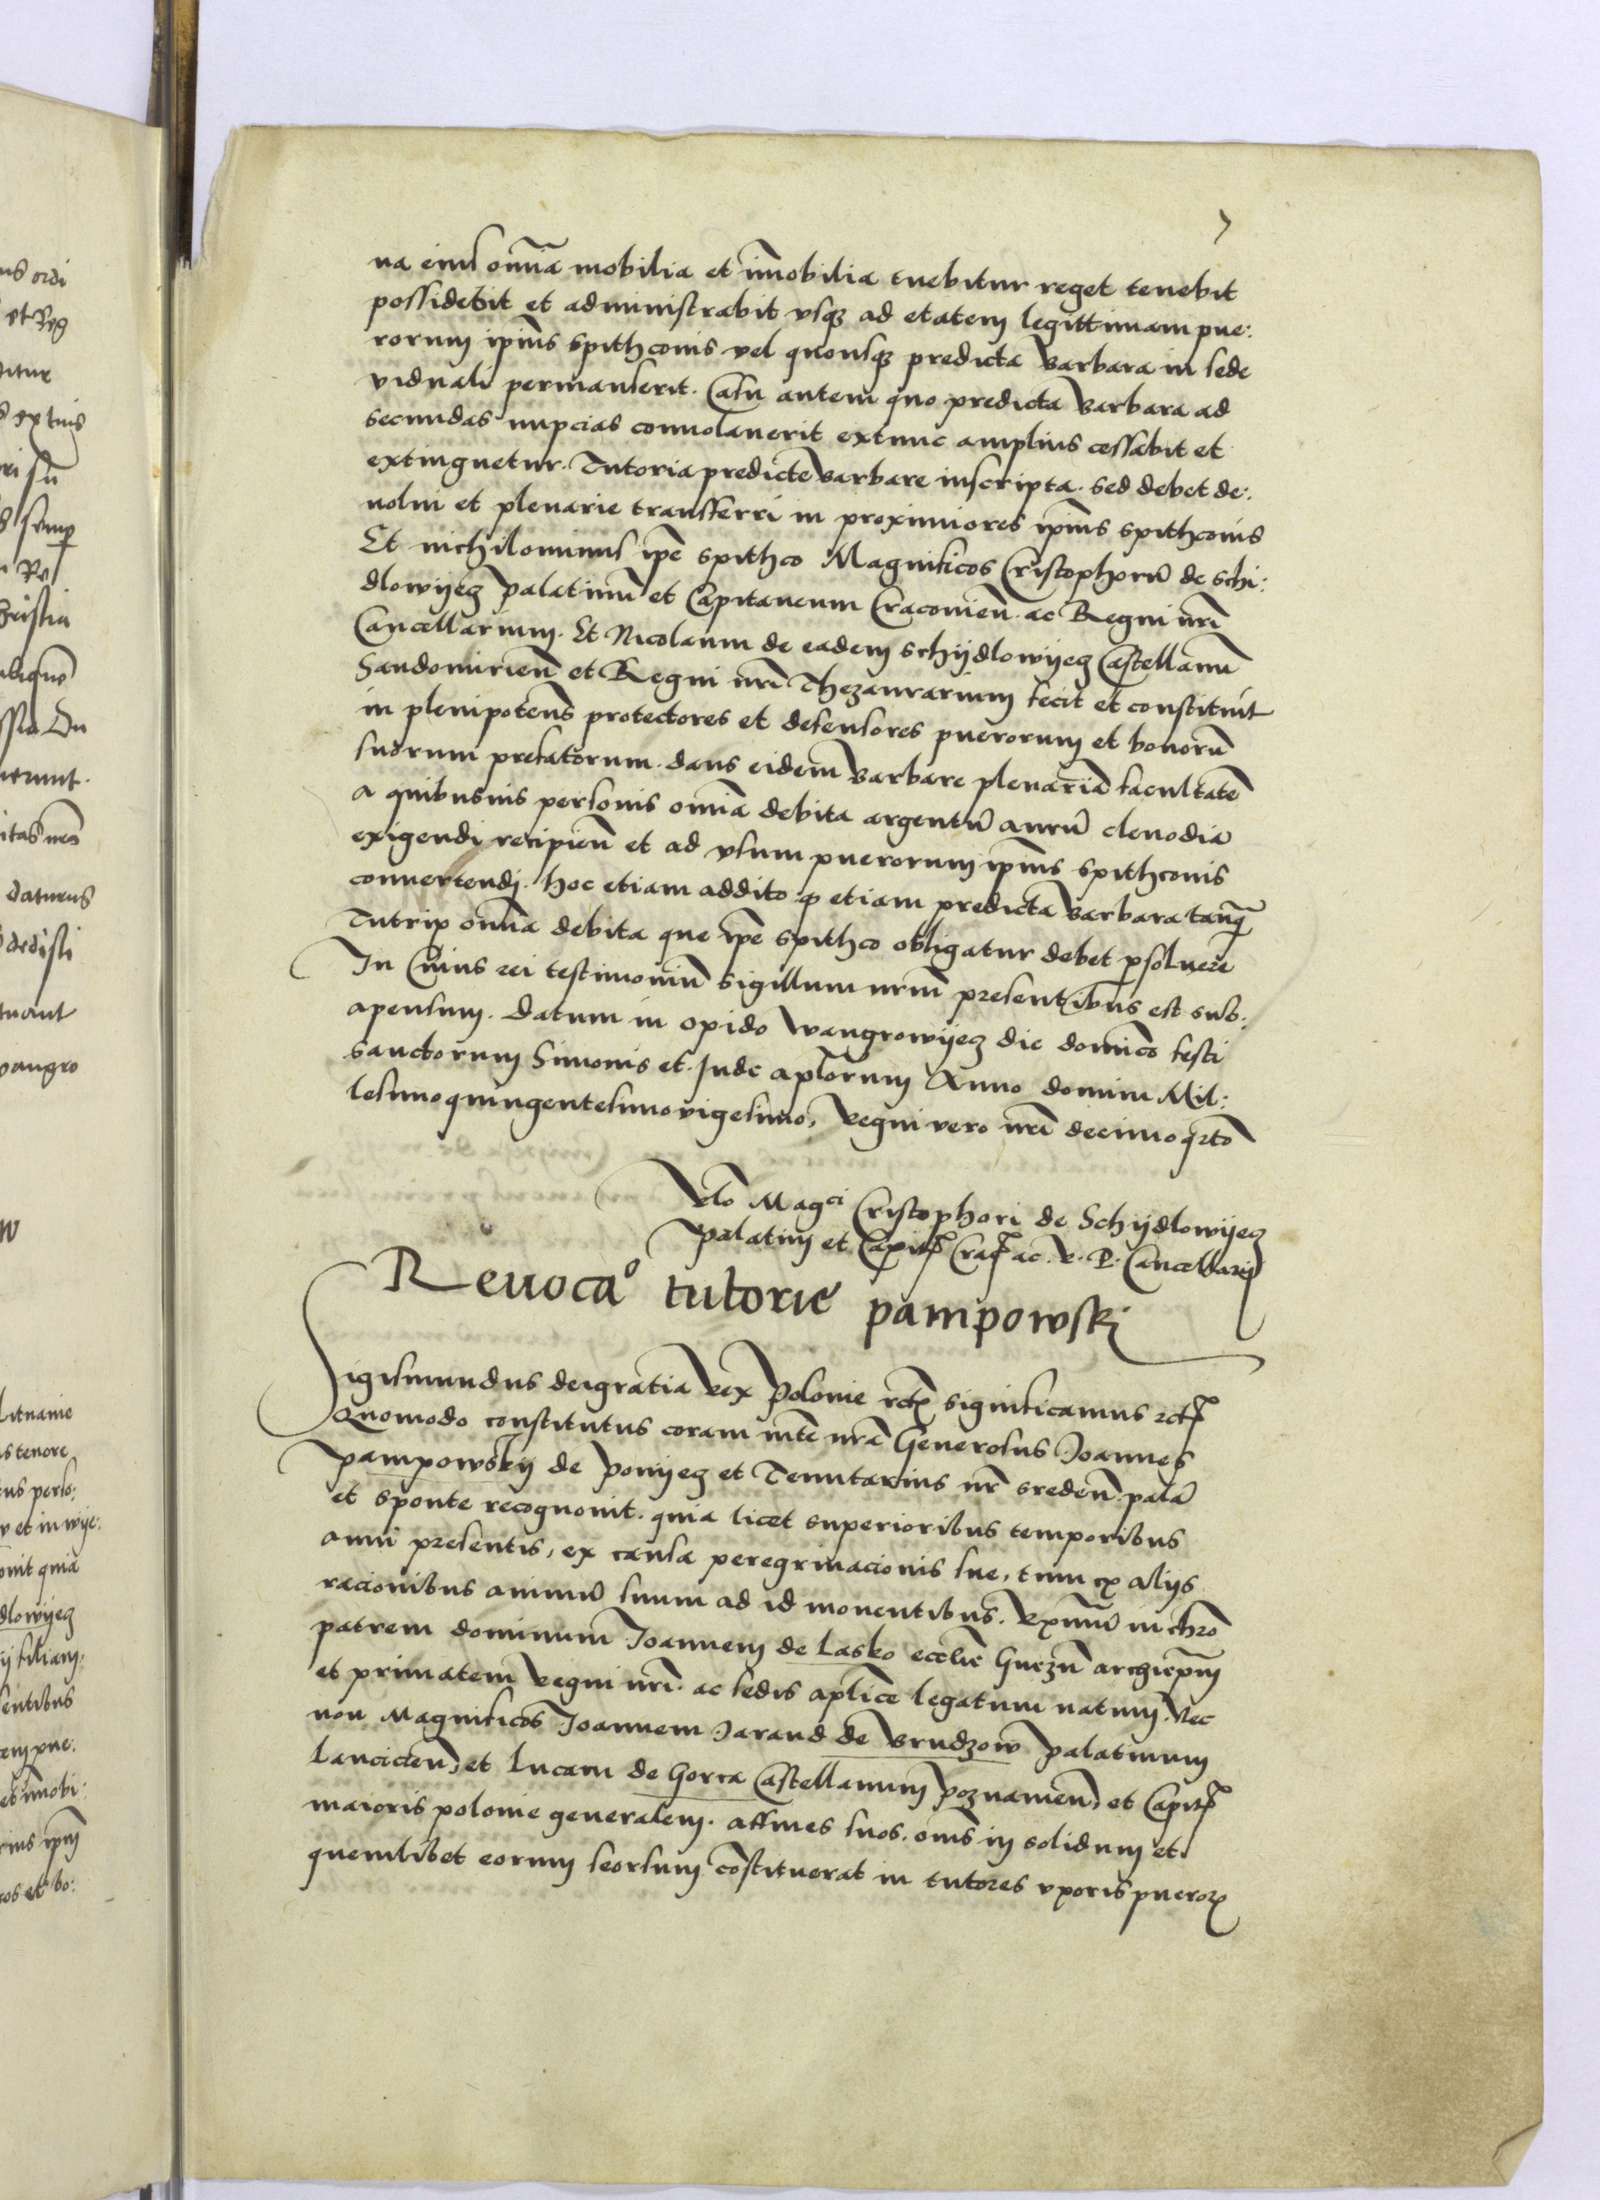 7
na eius om̄ia mobilia et im̄obilia tuebitur reget tenebit
possidebit et administrabit vsq₃ ad etatem legittimam pue:
rorum ip̄ius Spithconis vel quousq₃ predicta Barbara in sede
viduali permanserit. Casu autem quo predicta Barbara ad
secundas nupcias conuolauerit extunc amplius cessabit et
extinguetur. Tutoria predicte Barbare inscripta. sed debet de:
uolui et plenarie transferri in proximiores ip̄ius Spithconis
Et nichilominus ip̄e Spithco Magnificos Cristophorū de Schi:
dlowyecz Palatinū et Capitaneum Cracouien̄. ac Regni nr̄i
Cancellarium. Et Nicolaum de eadem Schydlowyecz Castellanū
Sandomirien̄ et Regni nr̄i Thezaurarium fecit et constituit
in plenipoten̄s protectores et defensores puerorum et bonorū
suorum prefatorum. dans eidem Barbare plenariā facultatē
a quibusuis personis om̄ia debita argentū aurū clenodia
exigendi recipien̄ et ad vsum puerorum ip̄ius Spithconis
conuertendi. hoc etiam addito ꝙ etiam predicta Barbara tanq̄
Tutrix om̄ia debita que ip̄e Spithco obligatur debet ꝑsoluere
In Cuius rei testimoniū sigillum nr̄m presentibus est sub:
apensum. Datum in opido Wangrowyecz die dominico festi
Sanctorum Simonis et Jude ap̄lorum Anno domini Mil:
lesimoquingentesimovigesimo, Regni vero nr̄i decimoqr̄to
Rel̄o Magci Cristophori de Schydlowyecz
Palatini et Capitꝭ Craꝭ ac. R. P. Cancellarij
Reuocao tutorie pampowski
Sigismundus deigratia Rex Polonie rctꝭ significamus rctꝭ
Quomodo constitutus coram m̄te nr̄a Generosus Joannes
Pampowsky de Ponyecz et Tenutarius nr̄ Sreden̄. palā
et sponte recognouit. quia licet superioribus temporibus
anni presentis, ex causa peregrinacionis sue, tum ex alijs
racionibus animū suum ad id mouentibus. Rx̄mū in chr̄o
patrem dominum Joannem de Lasko eccl̄ie Gnezn̄ archiep̄um
et primatem Regni nr̄i. ac sedis ap̄lice legatum natum. Nec
non Magnificos Joannem Jarand de Brudzow Palatinum
Lancicien̄, et Lucam de Gorca Castellanum Poznanien̄, et Capitꝭ
maioris polonie generalem. affines suos. om̄s in solidum et
quemlibet eorum seorsum cōstituerat in tutores vxoris pueroꝝ